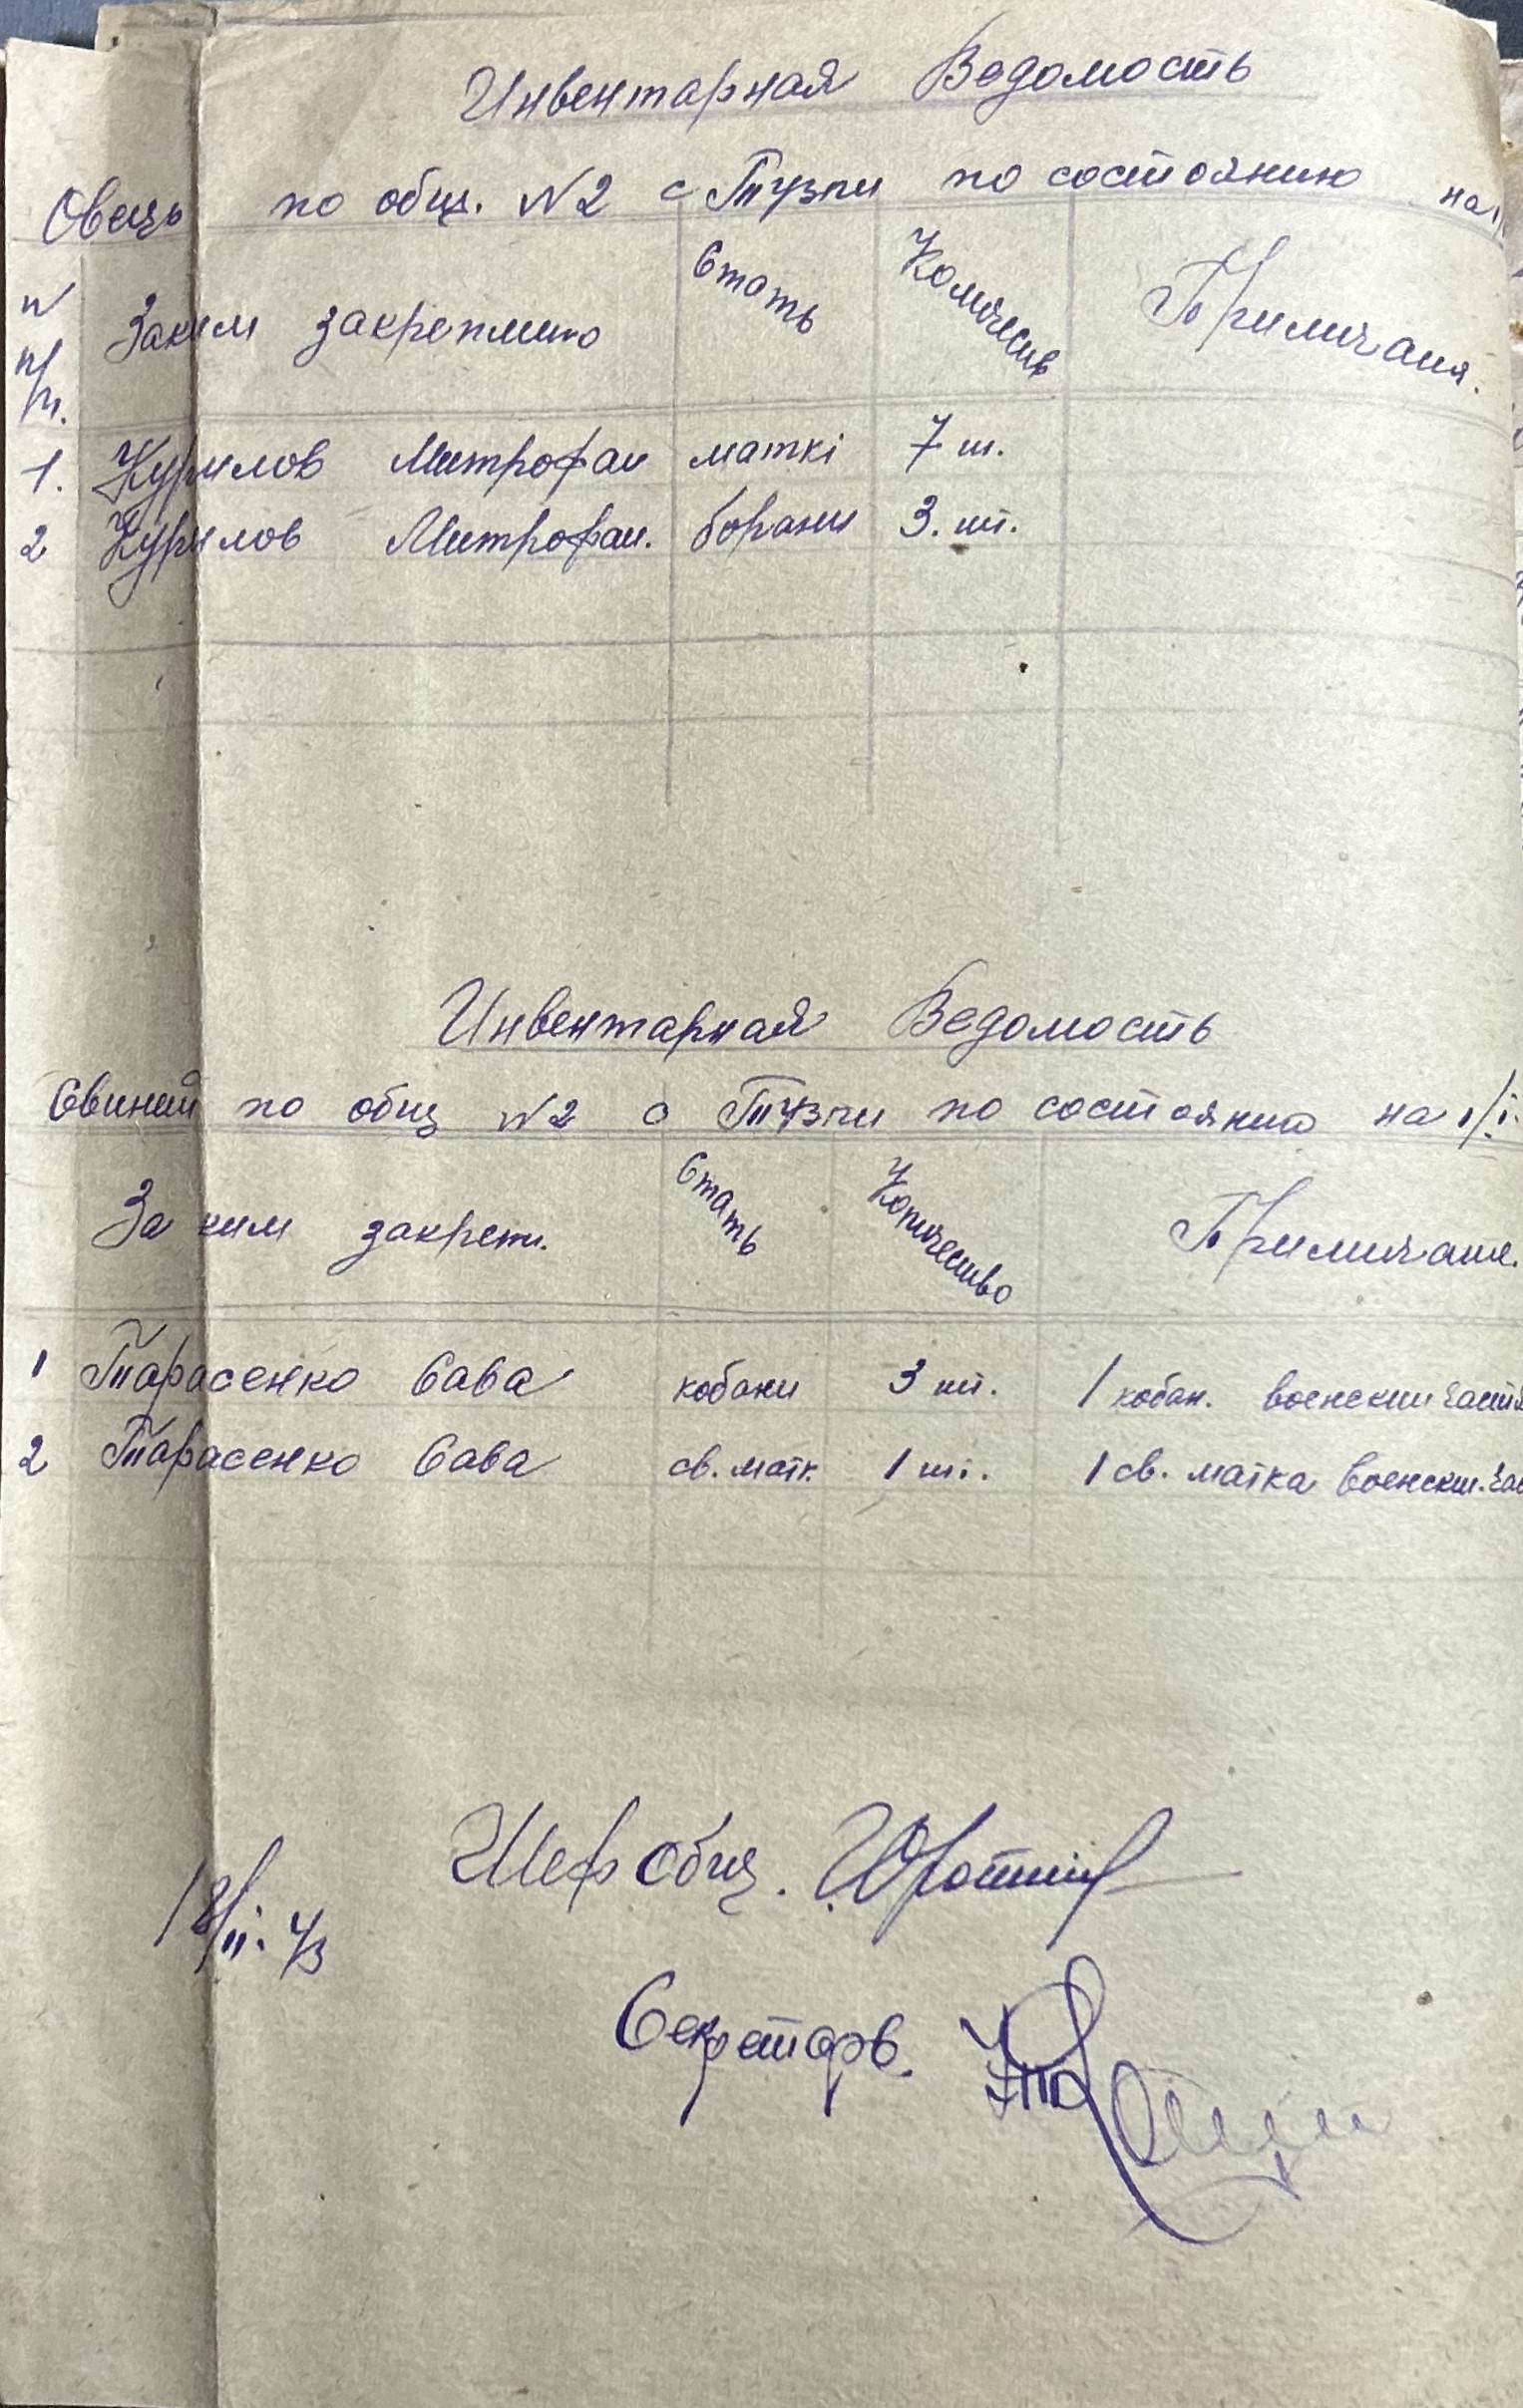 Инвентарная Ведомость
Овець по общ. N2 с Тузли по состоянию на
N п/п. Заким закреплино Стать Количеств Примичаня.
1. Курилов Митрофан маткі 7 ш.
2 Курилов Митрофан. борани 3. шт.
Инвентарная Ведомость
Свиний по общ N2 с Тузли по состоянию на 1/I.
За ким закрепл. Стать Количество Примичаня.
1 Тарасенко Сава кобани 3 шт. 1 кобан. военский частя
2 Тарасенко Сава св. матк. 1 шт. 1 св. матка военски. час
Шеф общ.
18/II. 43
Секретарь.